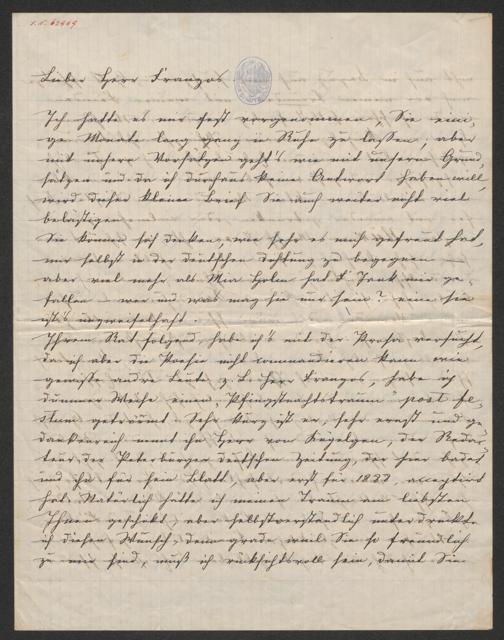 I.N. 62969
Lieber Herr Franzos
Ich hatte es mir fest vorgenommen, Sie eini-
ge Monate lang ganz in Ruhe zu lassen, aber
mit unsern Vorsätzen geht's wie mit unsern Grund-
sätzen und da ich durchaus keine Antwort haben will,
wird dieser kleine Brief Sie auch weiter nicht viel
belästigen.
Sie können sich denken, wie sehr es mich gefreut hat,
mir selbst in der deutschen Dichtung zu begegnen —
aber viel mehr als Mia Holm hat mir ge-
fallen — wer und was mag sie nur sein? eine sie
ist's unzweifelhaft.
Ihrem Rat folgend, habe ich's mit der Prosa versucht,
da ich aber die Poesie nicht commandieren kann wie
gewisse andre Leute z. B. Herr Franzos, habe ich
dummer Weise einen „Pfingstnachtstraum" post fe-
stum geträumt. Sehr kurz ist er, sehr ernst und ge-
dankenreich nennt ihn Herr von Kügelgen, der Redac-
teur der Petersburger deutschen Zeitung, der hier badet
und ihn für sein Blatt, aber erst für 1888, acceptirt
hat. Natürlich hätte ich meinen Traum am liebsten
Ihnen geschickt, aber selbstverständlich unterdrückte
ich diesen Wunsch, denn grade weil Sie so freundlich
zu mir sind, muß ich rücksichtsvoll sein, damit Sie